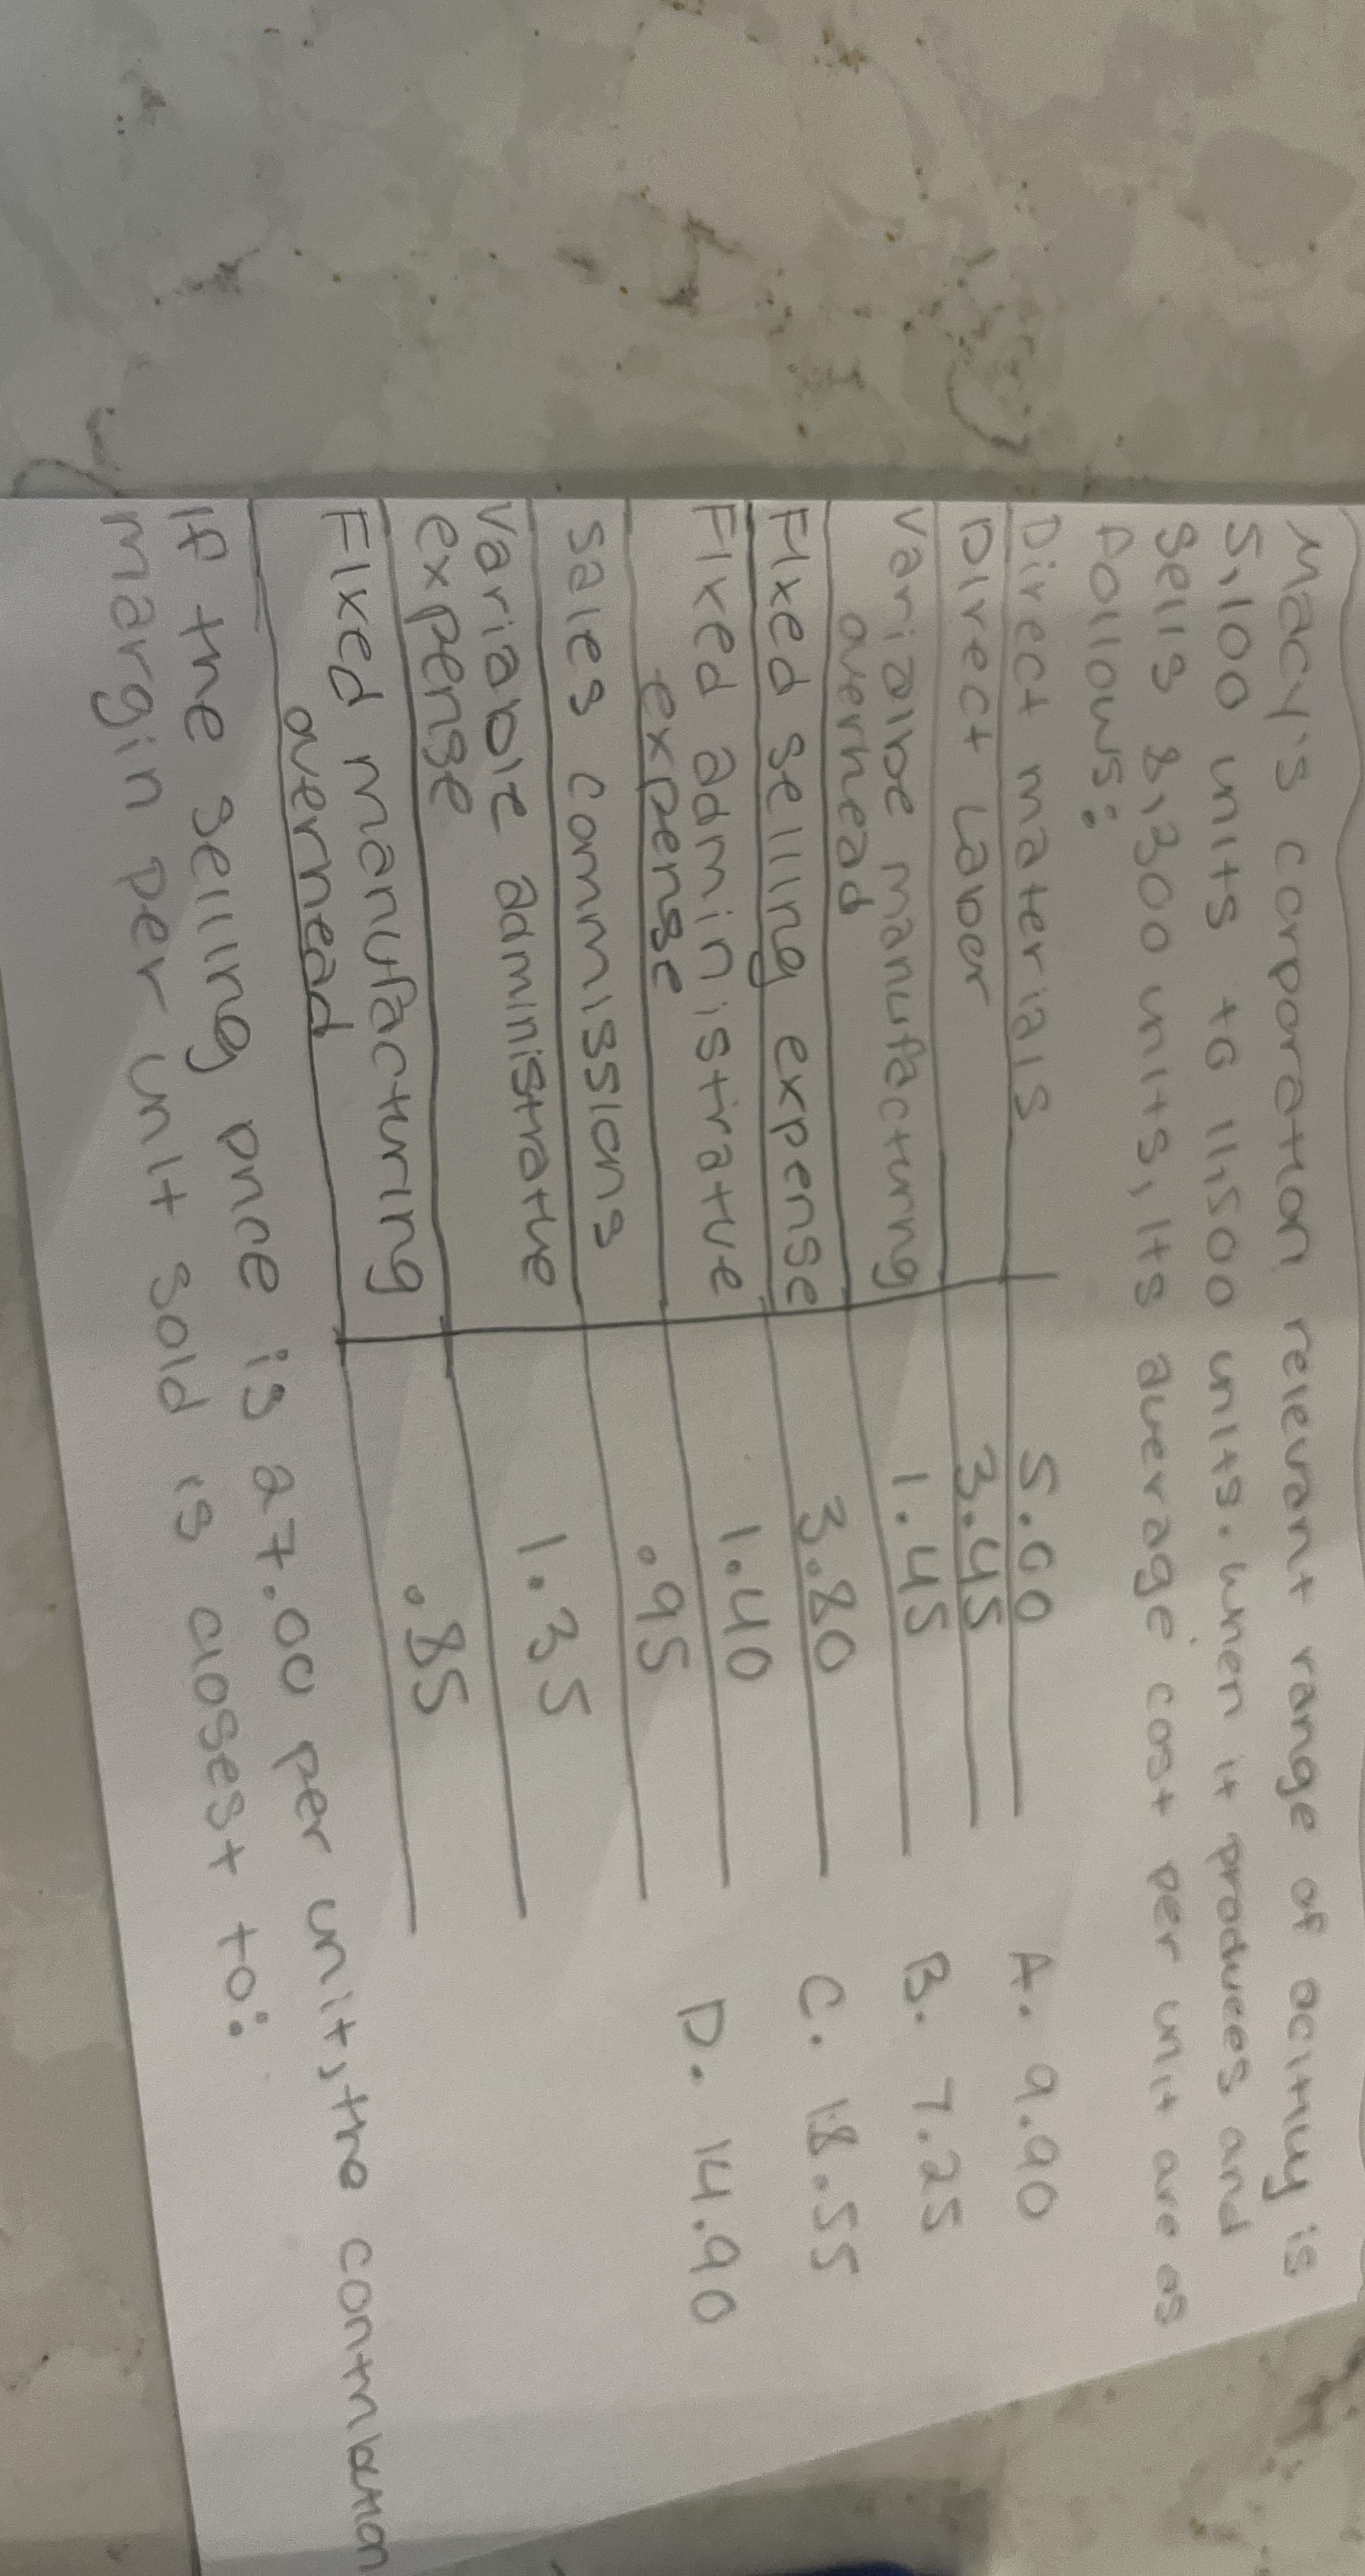 Macy's corporation relevant range of activity is
5,100 units to 11,500 units. when it produces and
sells 8,300 units, its average cost per unit are as
follows:
Direct materials 5.00
Direct Labor 3.45
Varialbe manufacturing 1.45
overhead
Fixed selling expense 3.80
Fixed administrative 1.40
expense
sales commissions .95
Variable administrative 1.35
expense
Fixed manufacturing .85
overhead
A. 9.90
B. 7.25
C. 18.55
D. 14.90
If the selling price is 27.00 per unit, the contribution
margin per unit sold is closest to: